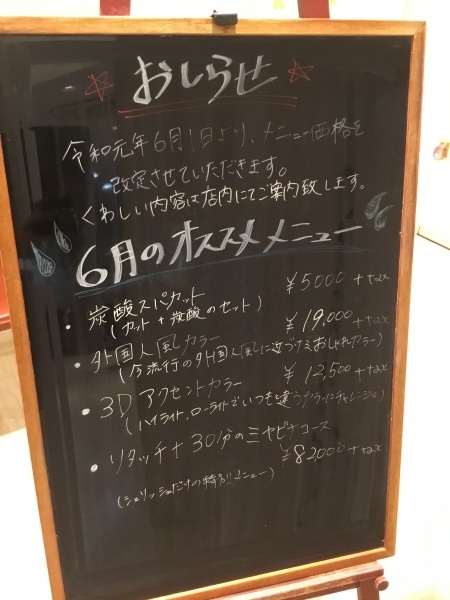 おしらせ
令和元年6月1日より、メニュー価格を
改定させていただきます。
くわしい内容は店内にてご案内致します。
6月のオススメメニュー
・炭酸スパカット ¥5000+tax
(カット+炭酸のセット)
・外国人風カラー ¥19,000+tax
(今流行の外国人風に近づけるおしゃれカラー)
・3Dアクセントカラー ¥12,500+tax
(ハイライト、ローライトでいつもと違うカラーにチャレンジ♪)
・リタッチ+30分のミヤビナコース
¥8200+tax
(シェリッシュだけの特別メニュー)